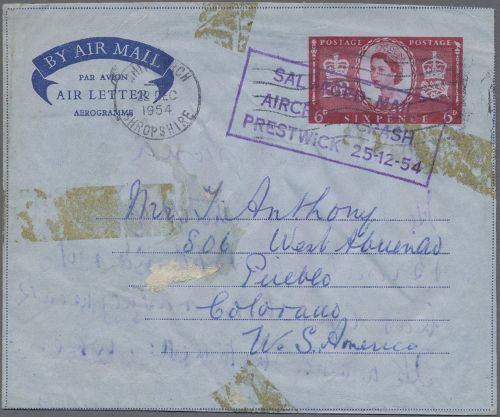 BY AIR MAIL
PAR AVION
AIR LETTER
AEROGRAMME
DEC
1954
SHROPSHIRE
POSTAGE POSTAGE
6D SIXPENCE 6D
SALVAGED MAIL
AIRCRAFT CRASH
PRESTWICK 25-12-54
Mrs. J. Anthony
806 West Abriendo
Pueblo
Colorado
U.S. America